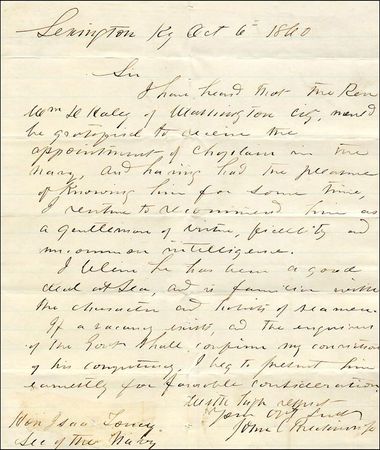 Lexington Ky Oct 6th 1860
Sir
I have heard that the Rev
Wm D Haley of Washington City, would
be gratified to receive the
appointment of Chaplain in the
Navy, and having had the pleasure
of knowing him for some time,
I venture to recommend him as
a gentleman of virtue, fidelity and
uncommon intelligence.
I believe he has been a good
deal at Sea, and is familiar with
the character and habits of seamen.
If a vacancy exists, and the enquiries
of the Govt shall confirm my conviction
of his competency, I beg to present him
earnestly for favorable consideration.
With high respect
Your Obt Servt
John C Breckinridge
Hon Isaac Toucey
Sec of the Navy